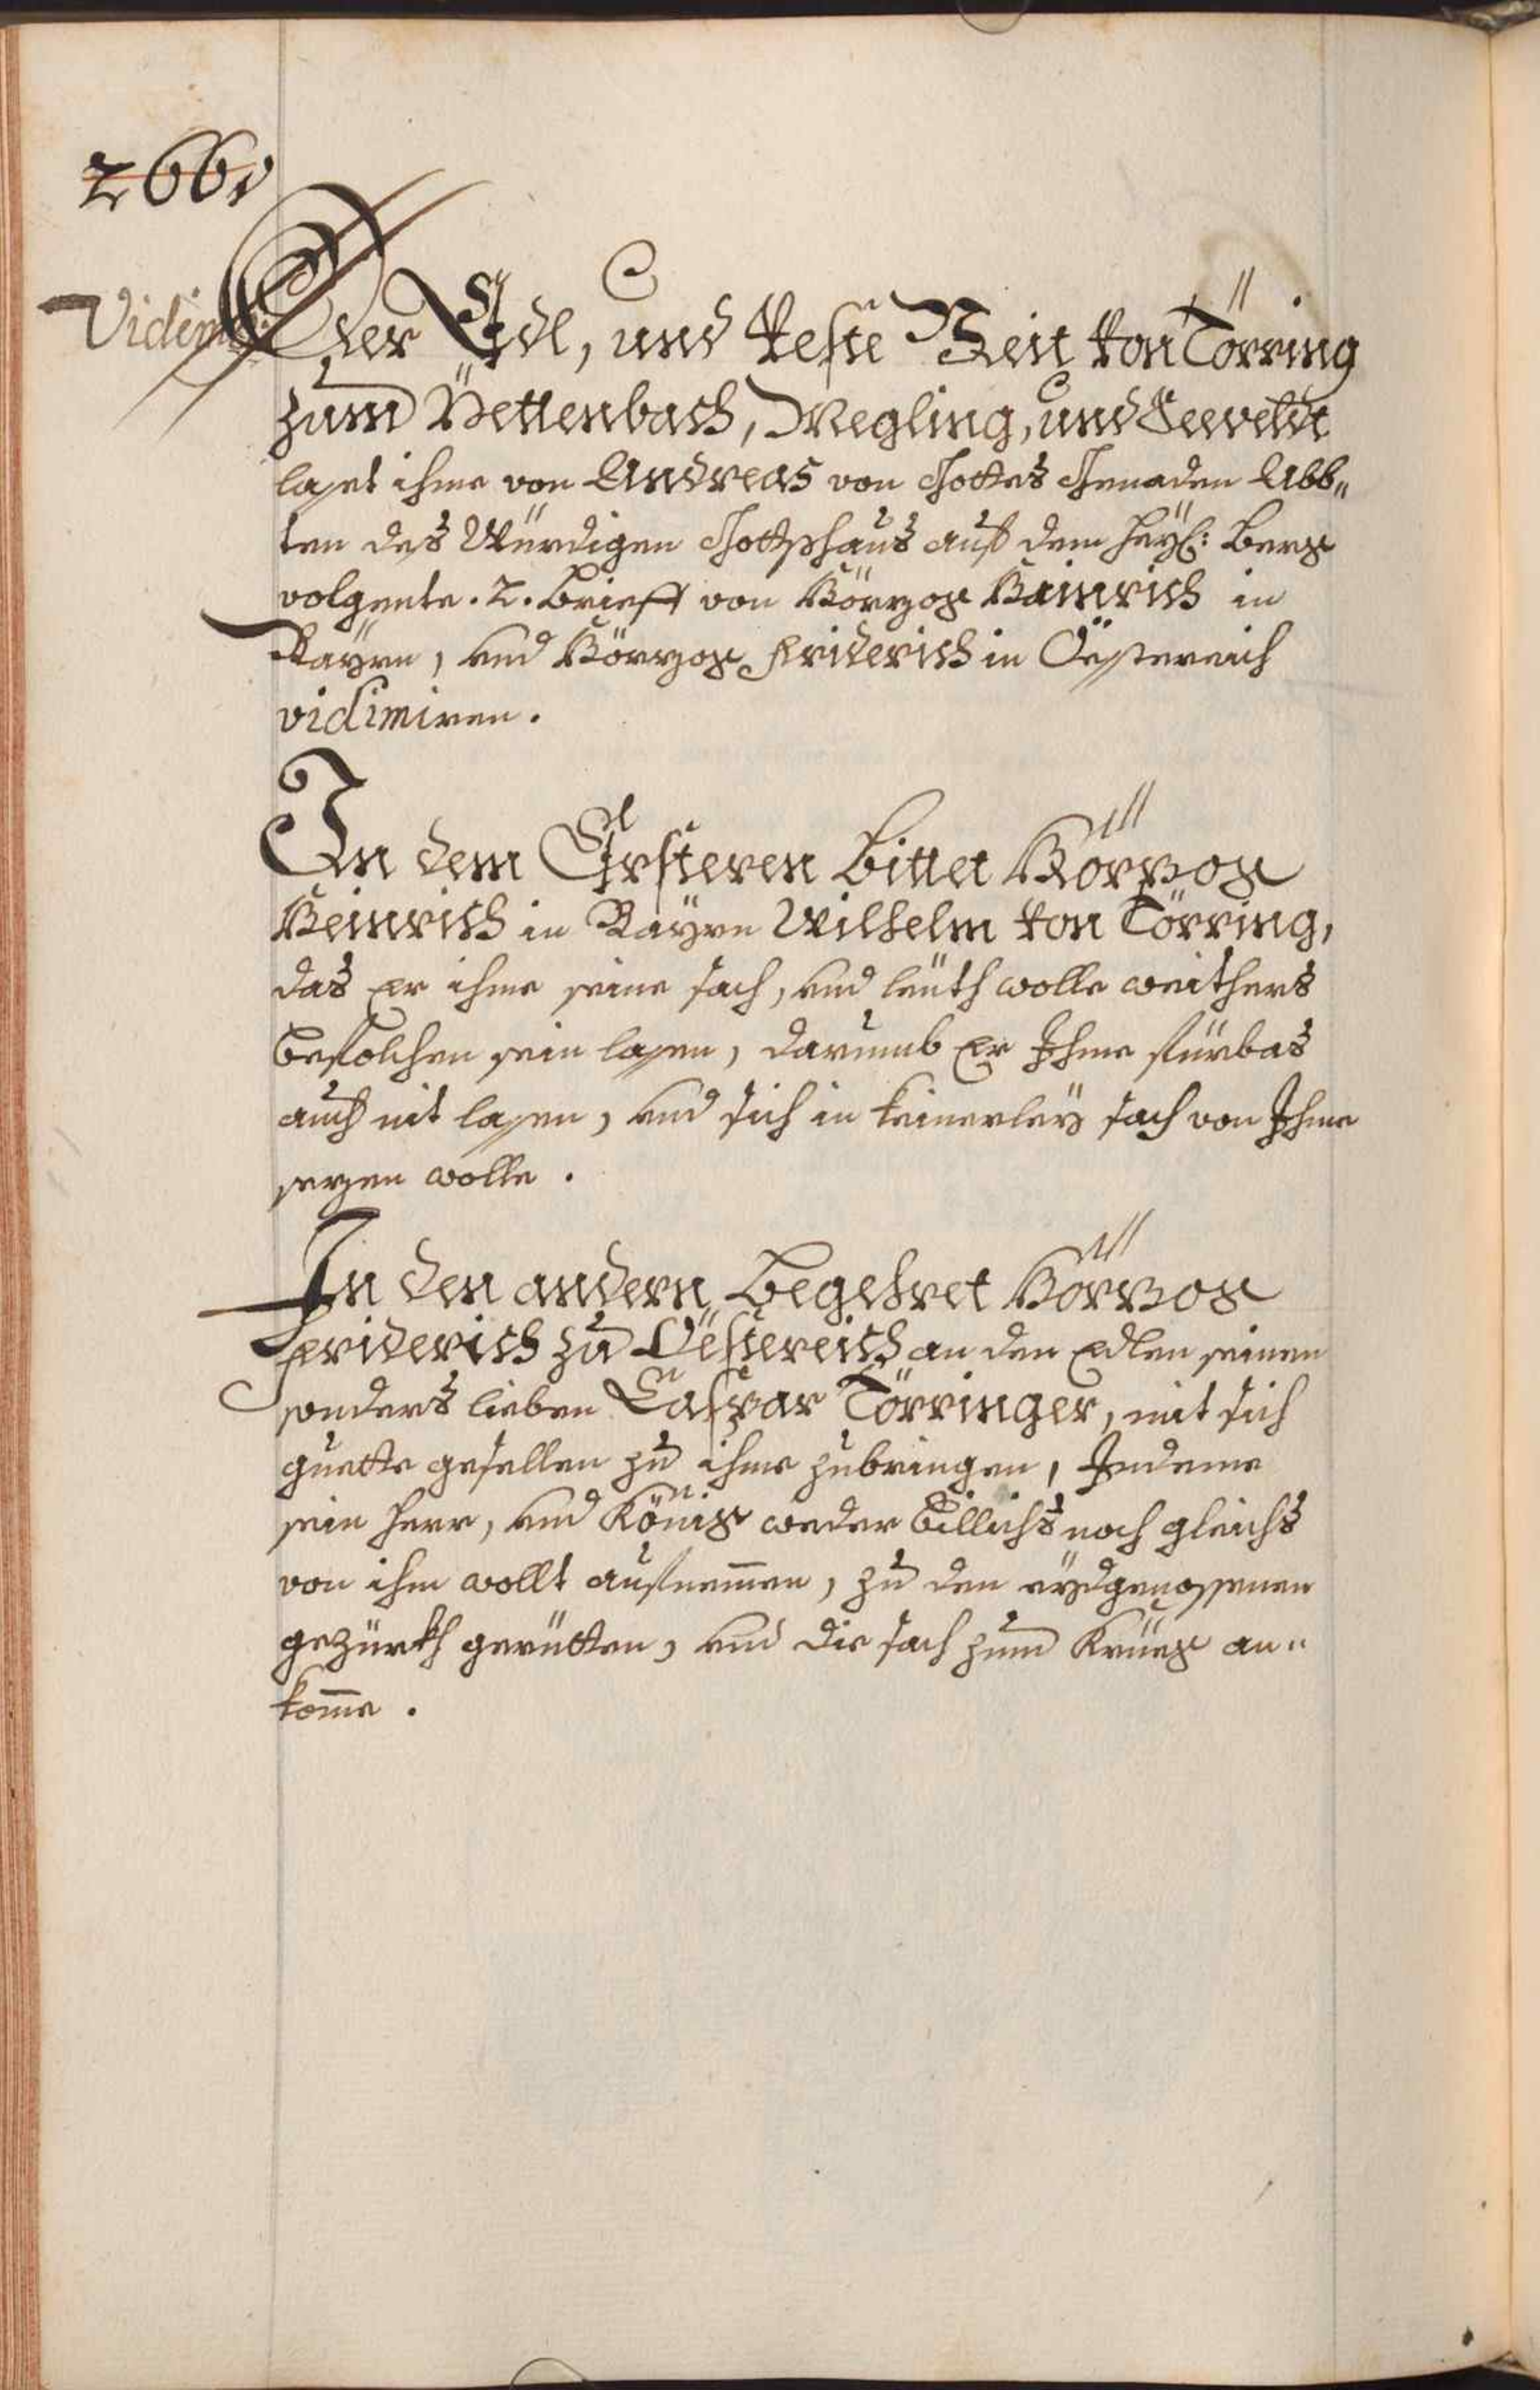 266v
Vidim:
Der Edl, und Veste Veit von Törring
zum Pettenbach, Megling, und Seeveldt
lasset ihme von Andreas von Gottes Genaden Abb„
ten des Würdigen Gottshaus auf dem Heyl: Berg
volgente .2. Brieff von Hörzog Hainrich in
Bayrn, und Hörzog Friderich in Össtereich
vidimiren.
In dem Ersteren bittet Hörzog
Heinrich in Bayrn Wilhelm von Törring,
das er ihme seine sach, und leüth wolle weithers
befolchen sein lassen, darumb Er Ihme fürbas
auch nit lassen, und sich in keinerley sach von Ihme
sezen wolle.
In den andern begehret Hörzog
Friderich zu Össtereich an den Edlen seinen
sonders lieben Caspar Törringer, mit sich
guette gesellen zu ihme zubringen, Indeme
sein Herr, und König weder billichs noch gleichs
von ihm wollt aufnemen, zu den eydgenossenen
gezürkh geritten, und die sach zum Krüeg an„
kome.